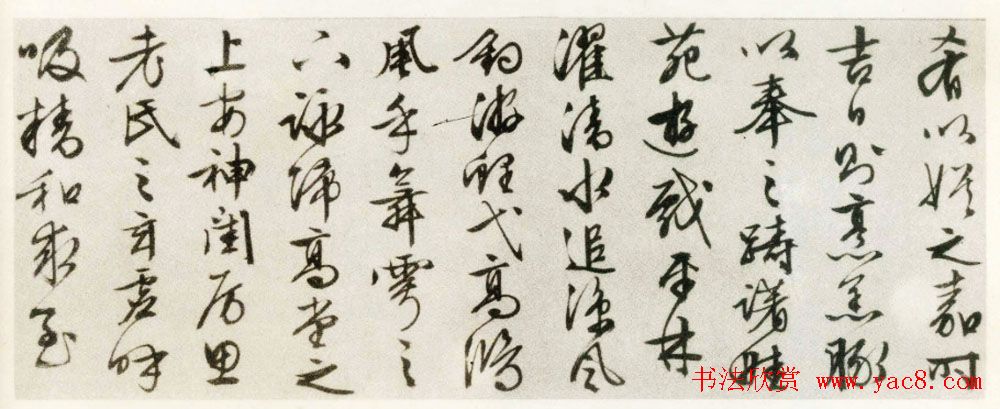 肴以娱之嘉時
吉日則烹羔豚
以奉之躊躇畦
苑遊戲平林
濯清水追涼風
釣游鯉弋高鴻
風乎舞雩之
下詠歸高堂之
上安神閨房思
老氏之玄虛呼
吸精和求至
书法欣赏 www.yac8.com